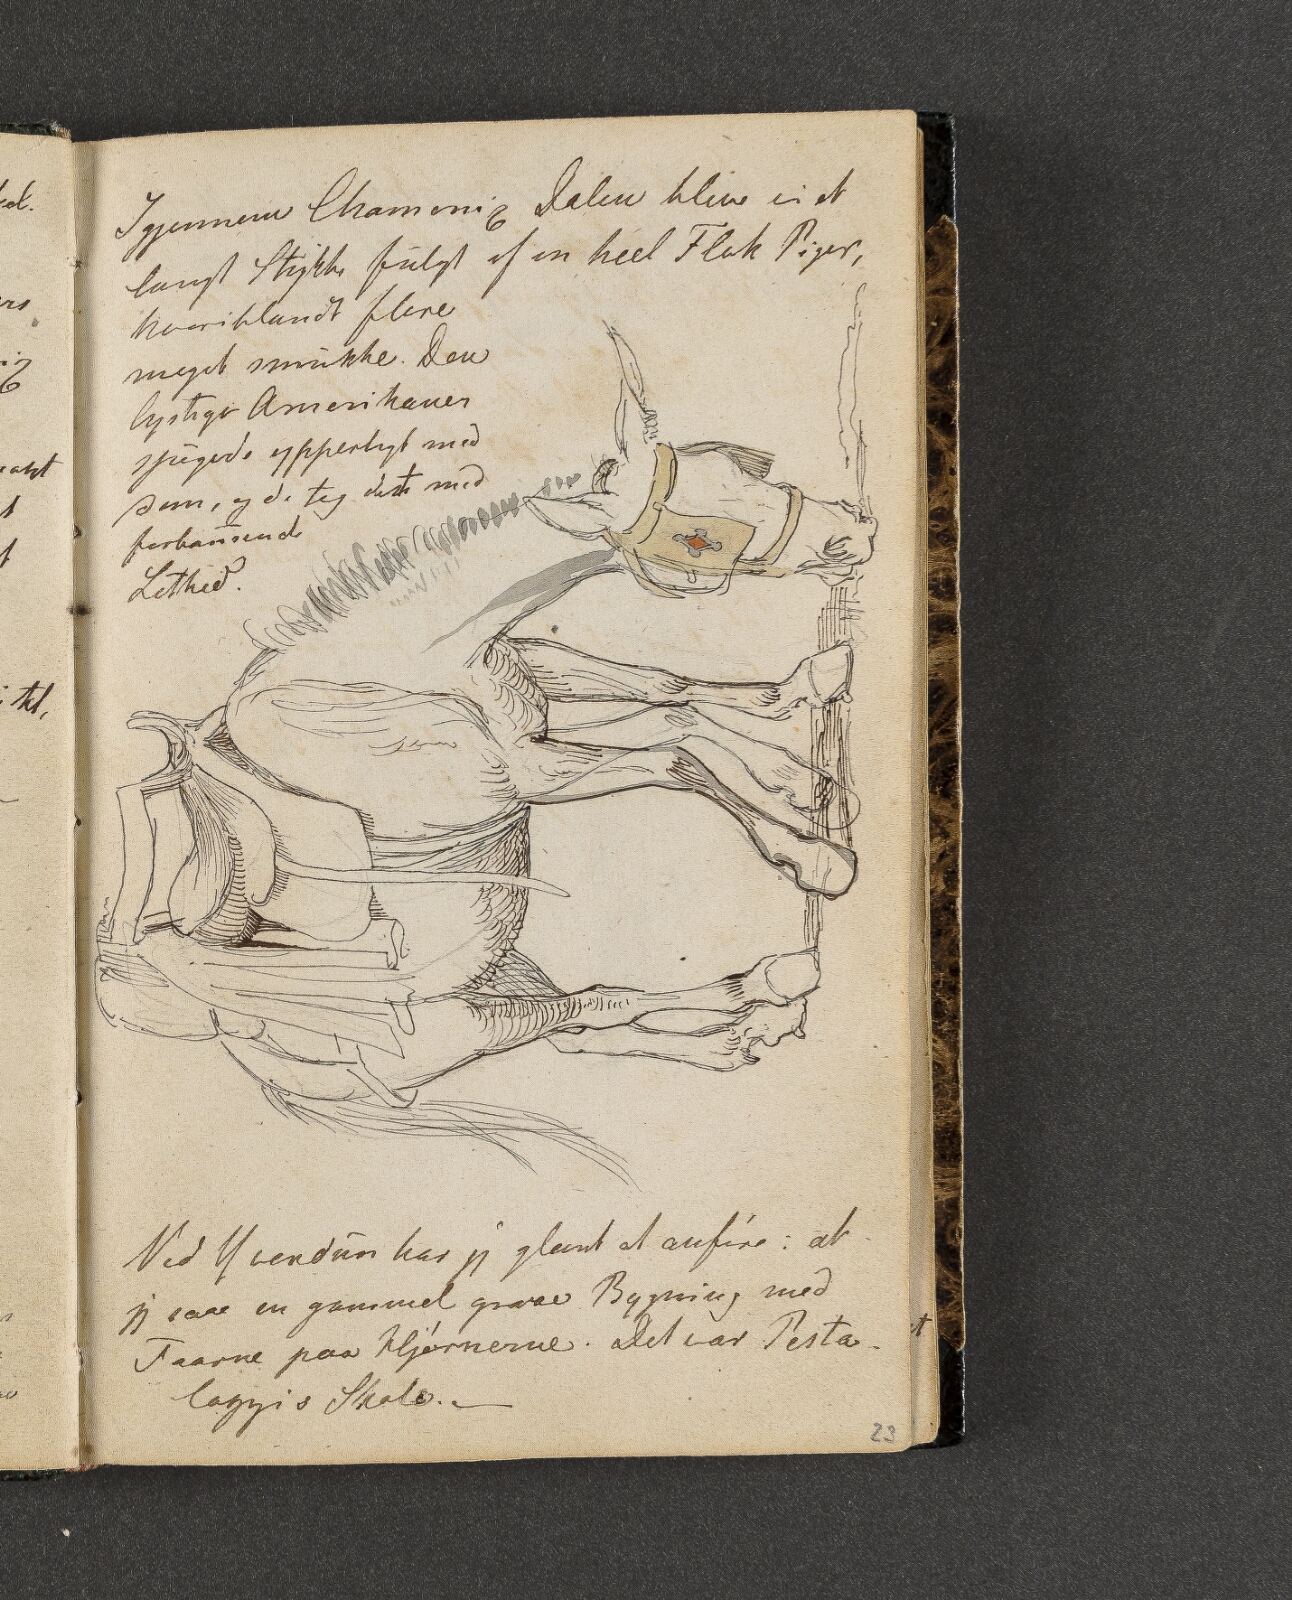 Igjennem Chamonix Dalen bleve vi et
langt Stykke fulgt af en heel Flok Piger,
hvoriblandt flere
meget smukke. Den
lystige Amerikaner
spøgede ypperligt med
dem, og de tog det med
forbausende
Lethed.
Ved Yverdun har jeg glemt at anføre: at
jeg saae en gammel graae Bygning med
Taarne paa Hjørnerne. Det var Pesta-
lozzis Skole. —
23